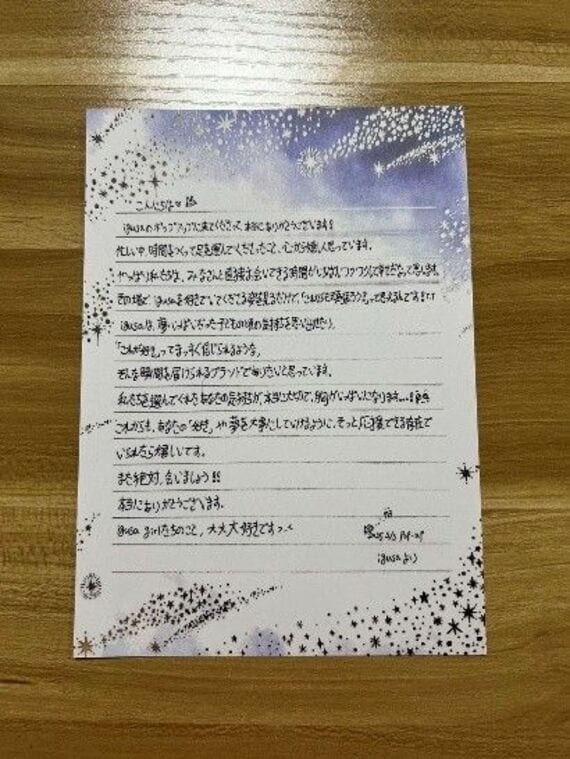 こんにちは
igusaのポップアップに来てくださって、本当にありがとうございます!
忙しい中、時間をつくって足を運んでくださったこと、心から嬉しく思っています。
やっぱり私たちは、みなさんと直接お会いできる時間がいちばん
その場で igusaを好きでいてくれてる姿を見るだけで、「これからも頑張ろう」って思えるんです!!
igusaは、夢いっぱいだった子どもの頃の気持ちを思い出せたり、
「これが好き」ってまっすぐ信じられるような、
そんな瞬間を届けられるブランドでありたいと思っています。
私たちを選んでくれたあなたの気持ちが、本当に大切で、胸がいっぱいになります…!
これからも、あなたの「好き」や夢を大事にしていけるように、そっと応援できる存在で
いられたら嬉しいです。
また絶対、会いましょう!!
本当にありがとうございます。
igusa girlたちのこと、大大大好きですっ
igusaより